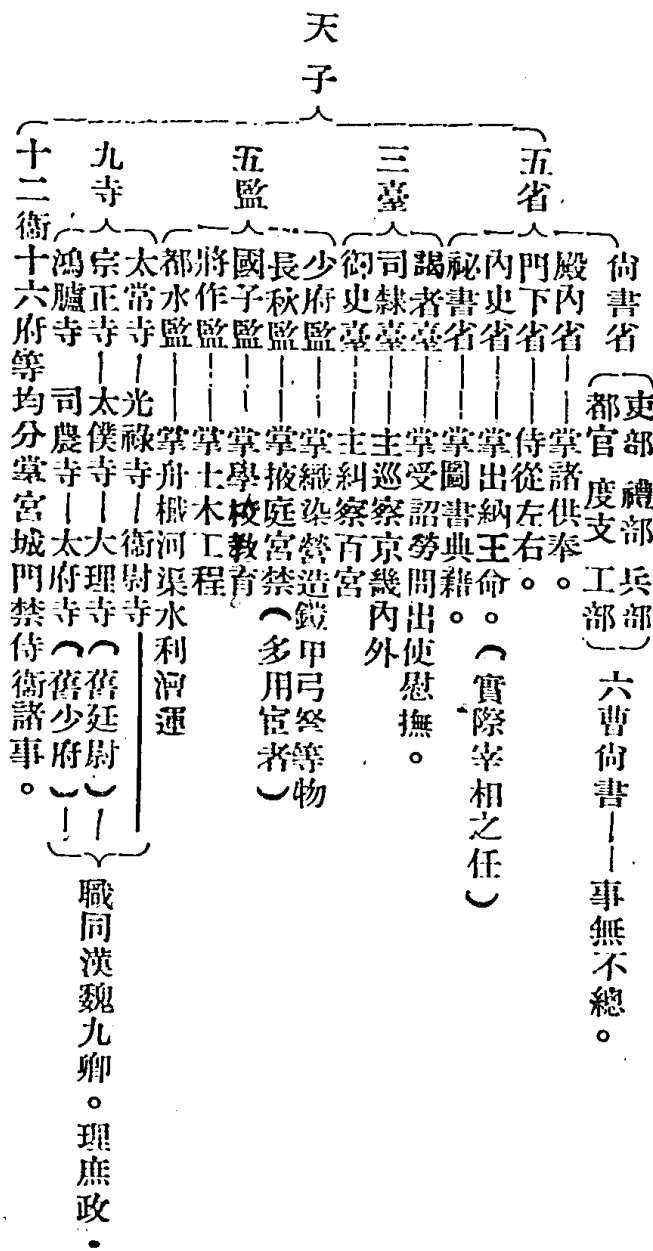 天子
五省
尙書省
吏部 禮部 兵部
都官 度支 工部
六曹尙書——事無不總。
殿內省——掌諸供奉。
門下省——侍從左右。
內史省——掌出納王命。(實際宰相之任)
祕書省——掌圖書典籍。
三臺
謁者臺——掌受詔勞問出使慰撫。
司隸臺——主巡察京畿內外
御史臺——主糾察百官
五監
少府監——掌織染營造鎧甲弓弩等物
長秋監——掌掖庭宮禁(多用宦者)
國子監——掌學校教育
將作監——掌土木工程
都水監——掌舟楫河渠水利漕運
九寺
太常寺—光祿寺—衞尉寺
宗正寺—太僕寺—大理寺(舊廷尉)—
鴻臚寺 司農寺—太府寺(舊少府)—
職同漢魏九卿。理庶政.
十二衞十六府等均分掌宮城門禁侍衞諸事。